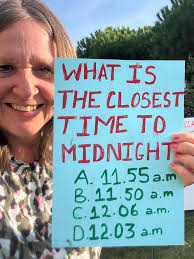 WHAT IS
THE CLOSEST
TIME TO
MIDNIGHT
A. 11.55 a.m
B. 11.50 a.m
C. 12.06 a.m.
D. 12.03 a.m